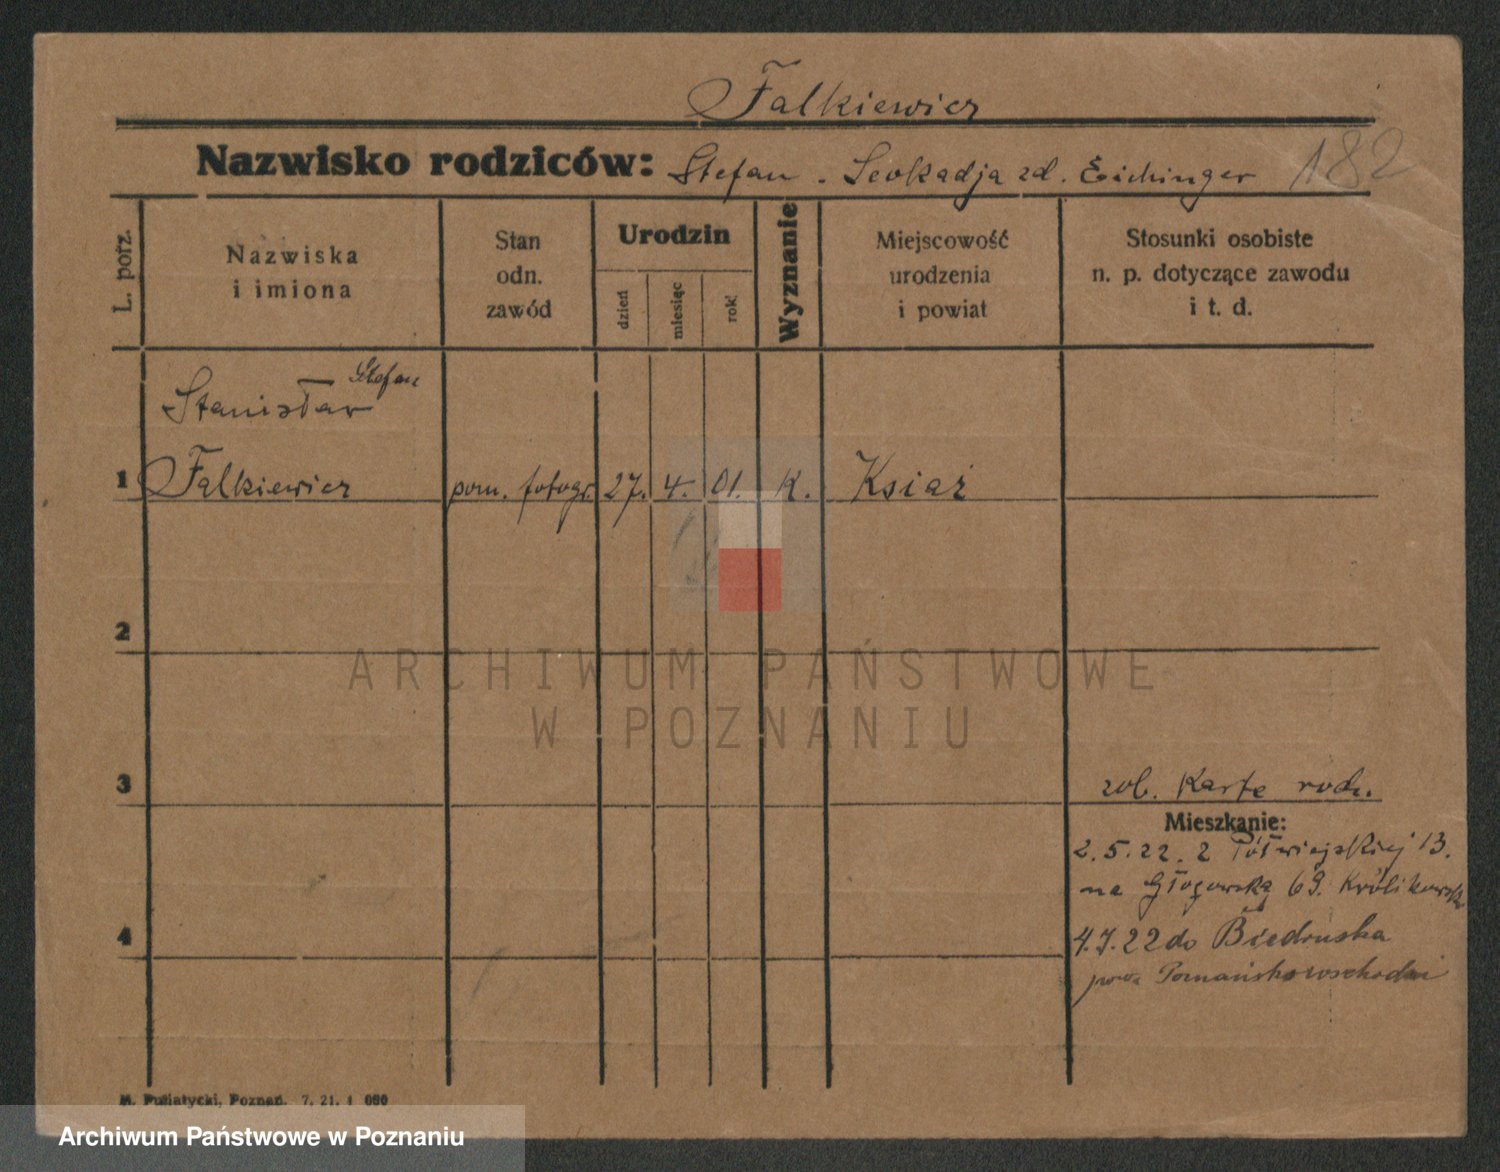 Falkiewicz
Nazwisko rodziców: Stefan - Leokadja zd. Eichinger 182
L. porz.
Nazwiska
i imiona
Stan
odn.
zawód
Urodzin
dzień
miesiąc
rok
Wyznanie
Miejscowość
urodzenia
i powiat
Stosunki osobiste
n. p. dotyczące zawodu
i t. d.
Stefan
Stanisław
1 Falkiewicz pom. fotogr. 27. 4. 01. K. Książ
2
ARCHIWUM PAŃSTWOWE
W POZNANIU
3
zob. Kartę rodz.
Mieszkanie:
2.5.22. z Półwiejskiej 13.
na Głogowską 69. Królikowska
4
4.7.22 do Biedruska
pow. Poznańska wschodni
M. Putiatycki, Poznań. 7. 21. 000
Archiwum Państwowe w Poznaniu